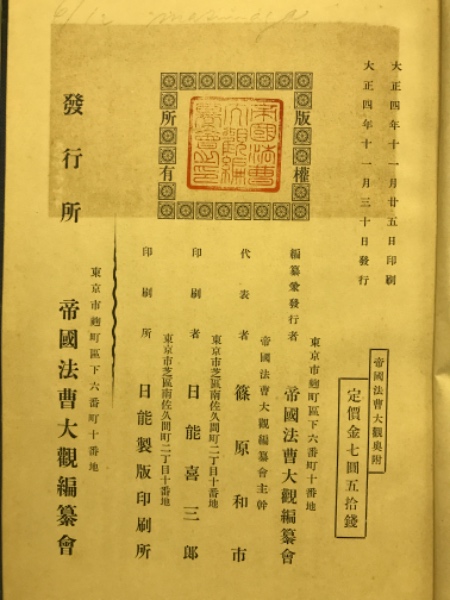 大正四年十一月廿五日印刷
大正四年十一月三十日發行
帝國法曹大觀奧附
定價金七圓五拾錢
版權
所有
帝國法曹大觀編纂會之印
東京市麴町區下六番町十番地
編纂兼發行者 帝國法曹大觀編纂會
帝國法曹大觀編纂會主幹
代表者 篠原和市
東京市芝區南佐久間町二丁目十番地
印刷者 日能喜三郎
東京市芝區南佐久間町二丁目十番地
印刷所 日能製版印刷所
發行所
東京市麴町區下六番町十番地
帝國法曹大觀編纂會